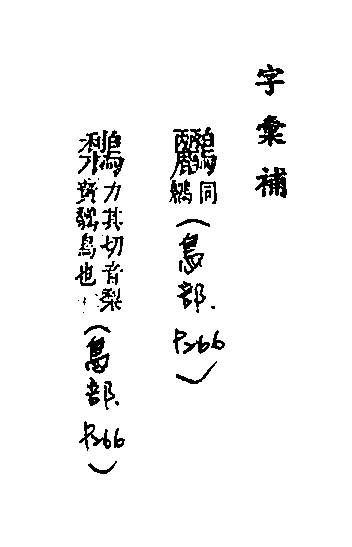 字彙補
鸝同(鳥部.P266)
力其切音梨
鳥也(鳥部.P266)